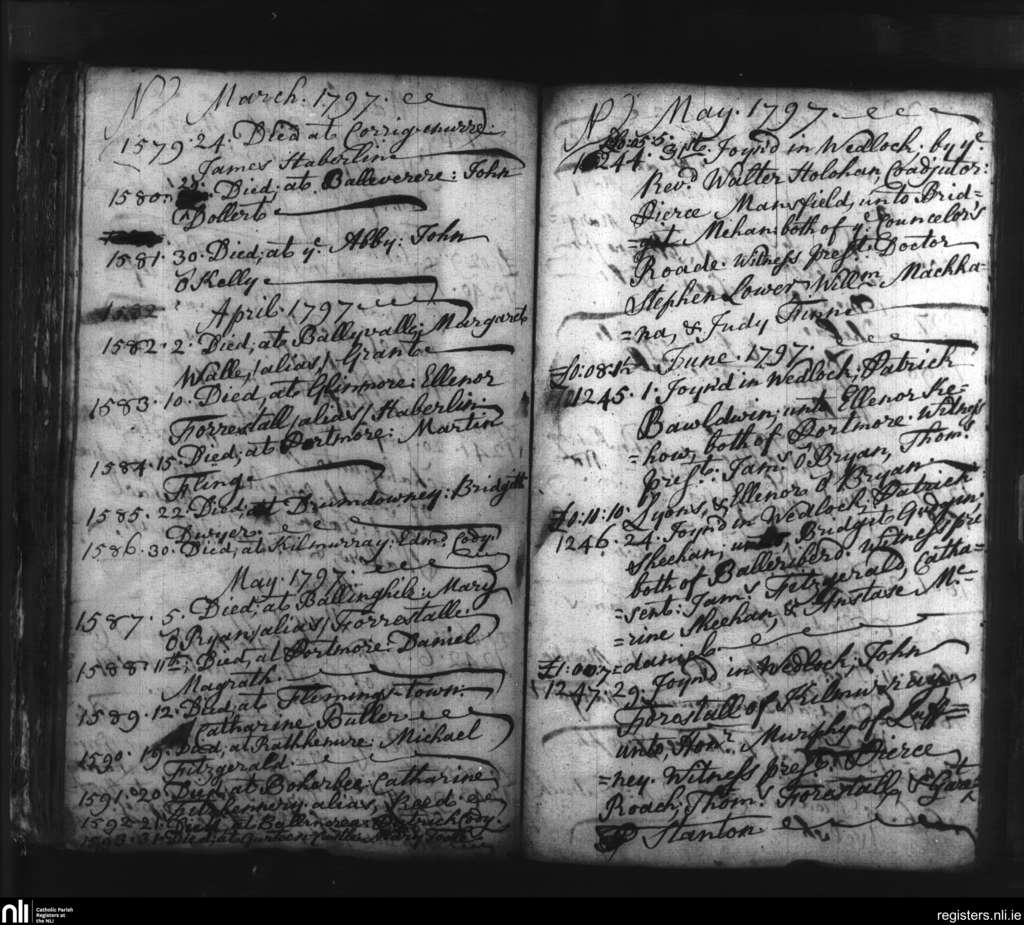 No March. 1797.
1579. 24. Died at Corrigenurre:
James Haberlin
1580. 28. Died; at. Balleverere: John
Dollert
1581. 30. Died; at ye. Abby: John
O Kelly
1582
April. 1797
1582. 2. Died; at Ballyvalle; Margaret
Walle, /alias/ Grant
1583. 10. Died, at Glinmore: Ellenor
Forrestall /alias/ Haberlin.
1584. 15. Died; at Portmore: Martin
Fling
1585. 22. Died, at Drumdowney: Bridgitt
Dwyer.
1586. 30. Died, at Kilmurray: Edmd. Cody.
May. 1797.
1587. 5. Died; at Ballinghile: Mary
O Ryan /alias/ Forrestalle.
1588. 11th: Died, at Portmore: Daniel
Magrath.
1589. 12. Died at Flemings-town.
Catharine Butler
1590. 19. Died, at Rathkenure: Michael
Fitzgerald.
1591. 20. Died at Boherbee: Catharine
alias, Freed.
1592. 21. Died, at Ballincrea: Patrick Cody.
1593. 31. Died, at
No May. 1797
£0:05:5
1244. 3. pt. Joyn'd in Wedlock. by ye
Revd. Walter Holohan, Coadjutor:
Pierce Mansfield, unto Brid=
=git Mehan: both of ye. Councelor's
Roade. Witness prest. Doctor
Stephen Lower, Willm. Mackha=
=na, & Judy Finne
£0:08:1½ June. 1797.
1245. 1. Joyn'd in Wedlock: Patrick
Bawldwin; unto Ellenor Ke=
=how, both of Portmore. Witness
prest. Jams. O Bryan, Thoms.
Lyons, & Ellenor O Bryan.
£0:10:10.
1246. 24. Joyn'd in Wedlock; Patrick
Sheehan, unto Bridgit
both of Balleriberd. Witness pre
=sent: Jams. Fitzgerald, Catha=
=rine Sheehan, & Anstase Mc=
=daniel.
£1:00:7
1247. 29. Joyn'd in Wedlock; John
Forestall of Kilmurray
unto, Honr. Murphy of Luff=
=ney. Witness prest. Pierce
Roach, Thoms. Forestall, & Garat
Stanton.
nli
Catholic Parish
Registers at
the NLI
registers.nli.ie